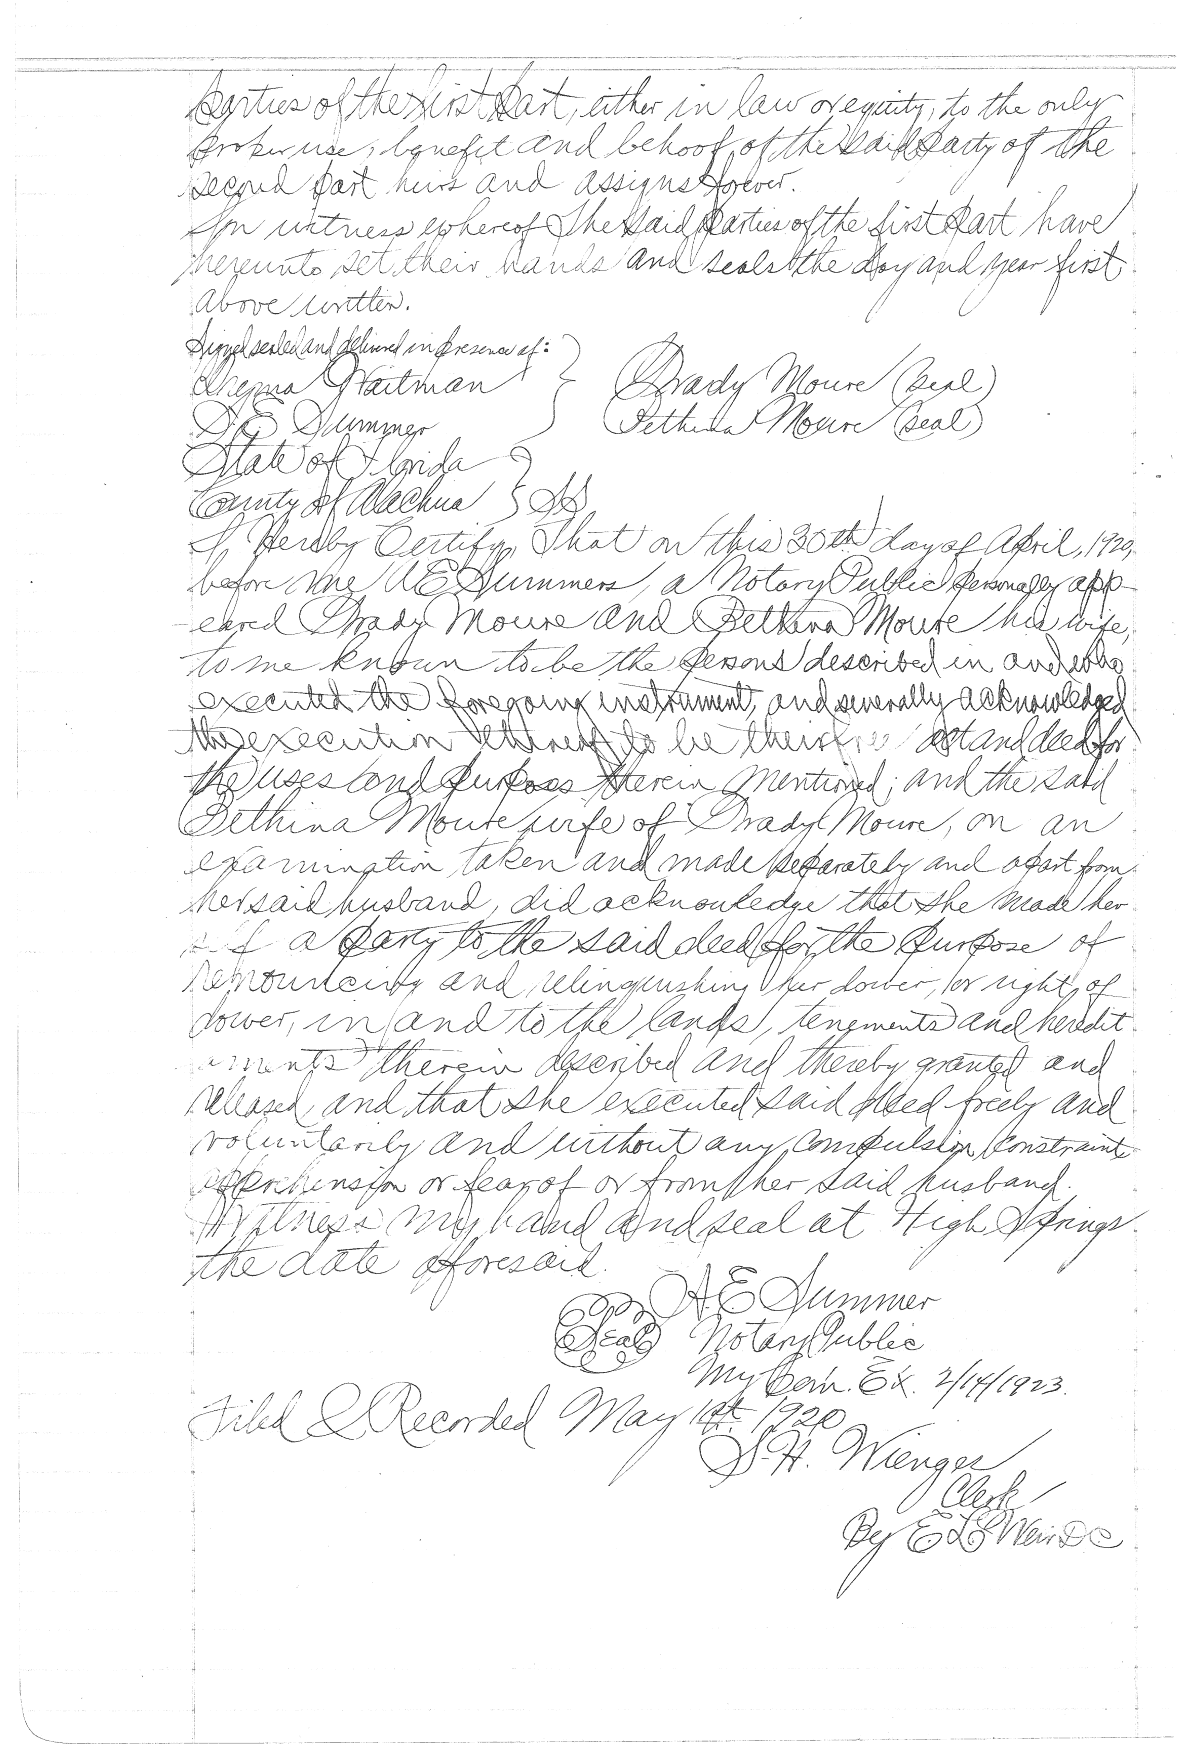 parties of the first part, either in law or equity, to the only
proper use, benefit and behoof, of the said party of the
second part heirs and assigns forever.
In witness whereof the said parties of the first part have
hereunto set their hands and seals the day and year first
above written.
Signed sealed and delivered in presence of:
Waitman } Grady Moure (seal)
A E Summer Bethina Moure (seal)
State of Florida
County of Alachua } SS
I, Hereby Certify, That on this 30th day of April, 1920,
before me A E Summers, a Notary Public personally app-
eared Grady Moure and Bethina Moure his wife,
to me known to be the persons described in and who
executed the foregoing instrument, and severally acknowledged
the execution thereof to be their free act and deed for
the uses and purposes therein mentioned; and the said
Bethina Moure wife of Grady Moure, on an
examination taken and made separately and apart from
her said husband, did acknowledge that she made her
self a party to the said deed for the purpose of
renouncing and relinquishing her dower, or right of
dower, in and to the lands, tenements and heredit
aments therein described and thereby granted and
released, and that she executed said deed freely and
voluntarily and without any compulsion, constraint
apprehension or fear of or from her said husband.
Witness my hand and seal at High Springs
the date aforesaid.
A.E Summer
(Seal) Notary Public
My Com. Ex. 2/14/1923.
Filed & Recorded May 1st 1920
S.H. Wienges
Clerk
By E L Weir D C